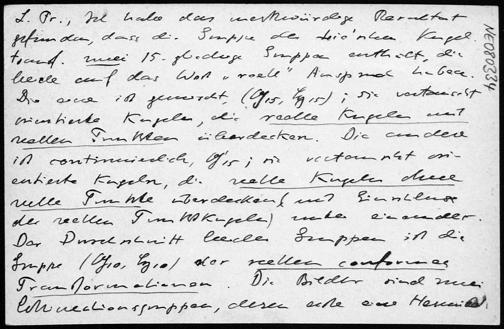 L. Pr., Ich habe das merkwürdige Resultat
gefunden, dass die Gruppe der Lie'schen Kugel
transf. zwei 15-gliedrige Gruppen enthält, die
beide auf das Wort "reell" Anspruch haben.
Die eine ist gemischt, (G15, H15); sie vertauscht
orientierte Kugeln, die reelle Kugeln mit
reellen Punkten überdecken. Die andere
ist continuierlich, G'15; sie vertauscht ori-
entierte Kugeln, die reelle Kugeln ohne
reelle Punkte überdecken (mit Einschluss
der reellen Punktkugeln) unter einander.
Der Durchschnitt beider Gruppen ist die
Gruppe (G10, H10) der reellen conformen
Transformationen. Die Bilder sind zwei
Collineationsgruppen, deren erste eine
NE080234